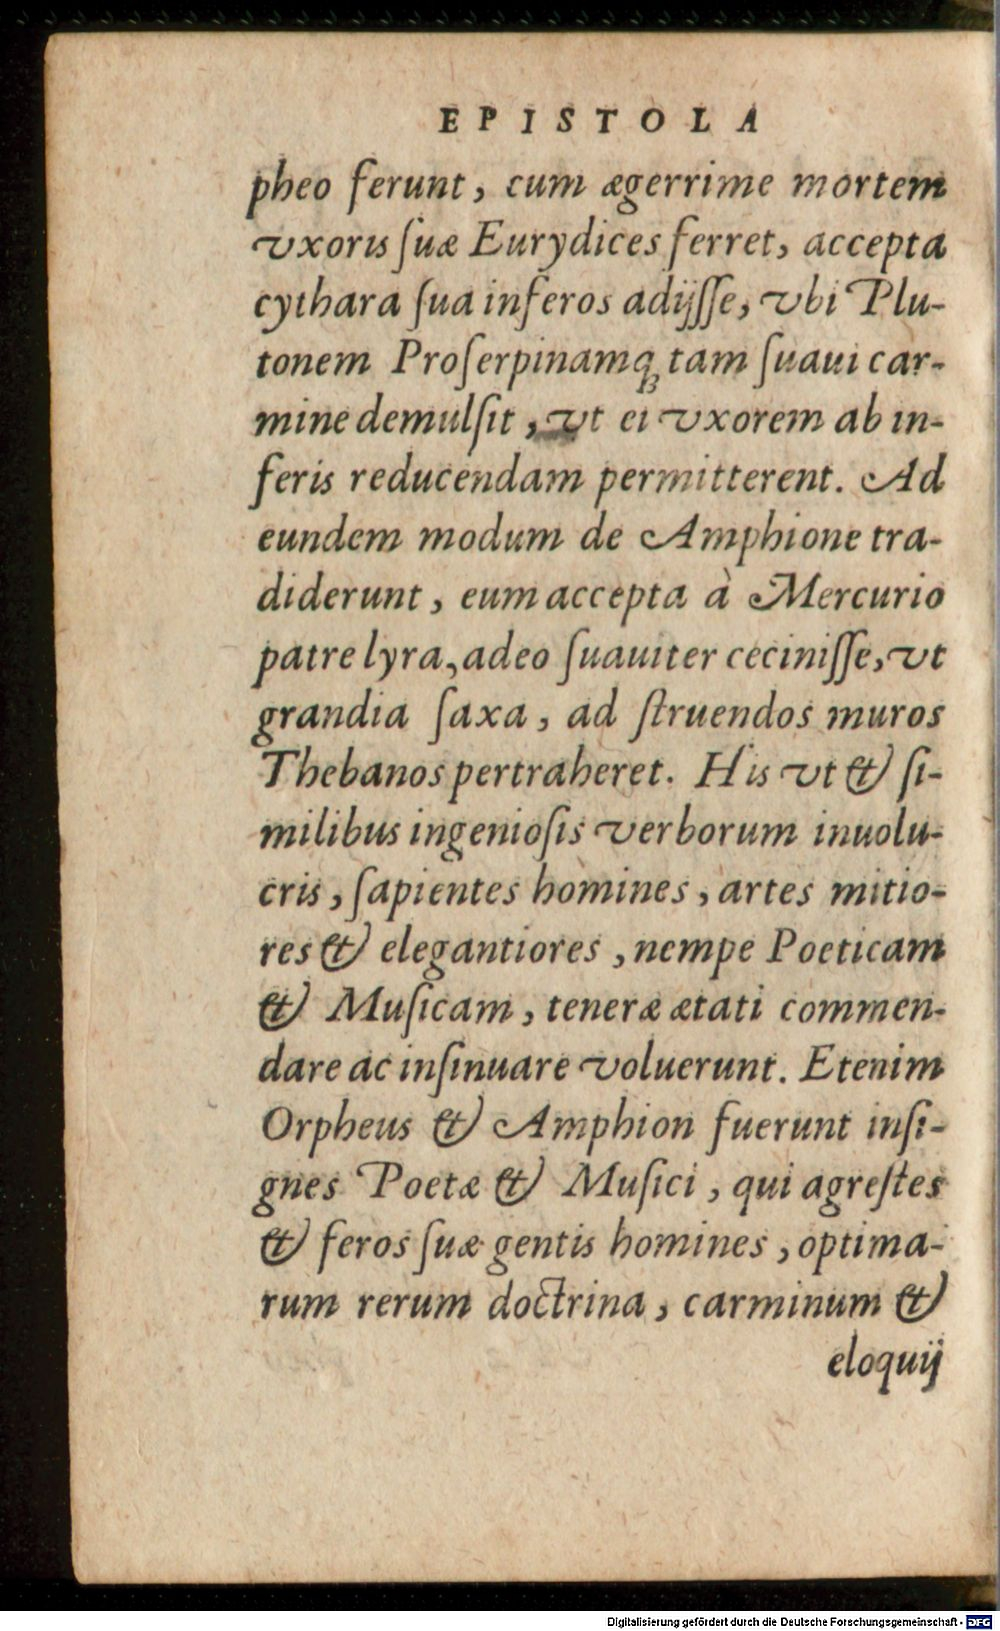 EPISTOLA
pheo ferunt, cum ægerrime mortem
vxoris ſuæ Eurydices ferret, accepta
cythara ſua inferos adijſſe, vbi Plu-
tonem Proſerpinamq́ꝫ tam ſuaui car-
mine demulſit, vt ei vxorem ab in-
feris reducendam permitterent. Ad
eundem modum de Amphione tra-
diderunt, eum accepta à Mercurio
patre lyra, adeo ſuauiter ceciniſſe, vt
grandia ſaxa, ad ſtruendos muros
Thebanos pertraheret. His vt & ſi-
milibus ingenioſis verborum inuolu-
cris, ſapientes homines, artes mitio-
res & elegantiores, nempe Poeticam
& Muſicam, teneræ ætati commen-
dare ac inſinuare voluerunt. Etenim
Orpheus & Amphion fuerunt inſi-
gnes Poetæ & Muſici, qui agreſtes
& feros ſuæ gentis homines, optima-
rum rerum doctrina, carminum &
eloquij
Digitalisierung gefördert durch die Deutsche Forschungsgemeinschaft - DFG